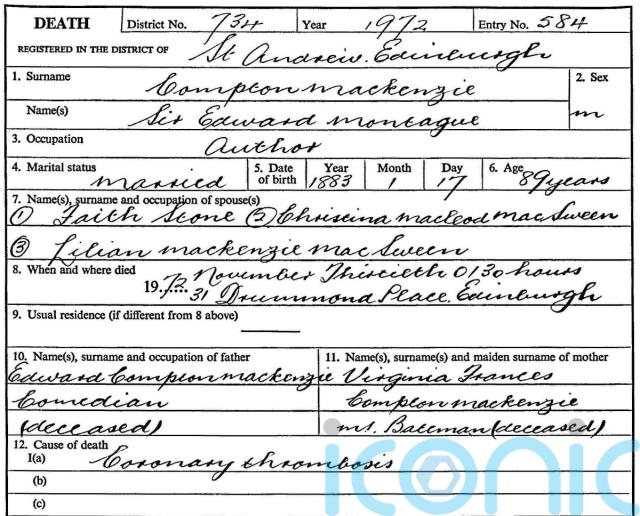 DEATH District No. 734 Year 1972 Entry No. 584
REGISTERED IN THE DISTRICT OF St Andrew. Edinburgh
1. Surname 2. Sex
Compton Mackenzie
Name(s) m
Sir Edward Montague
3. Occupation
Author
4. Marital status 5. Date of birth Year Month Day 6. Age
married 1883 1 17 89 years
7. Name(s), surname and occupation of spouse(s)
① Faith Stone ② Chriscina Macleod MacSween
③ Lilian Mackenzie MacSween
8. When and where died
1972 November Thirtieth 0130 hours
31 Drummond Place. Edinburgh
9. Usual residence (if different from 8 above)
10. Name(s), surname and occupation of father 11. Name(s), surname(s) and maiden surname of mother
Edward Compton Mackenzie Virginia Frances
Comedian Compton Mackenzie
(deceased) m.s. Bateman (deceased)
12. Cause of death
I(a) Coronary thrombosis
(b)
(c)
iconic